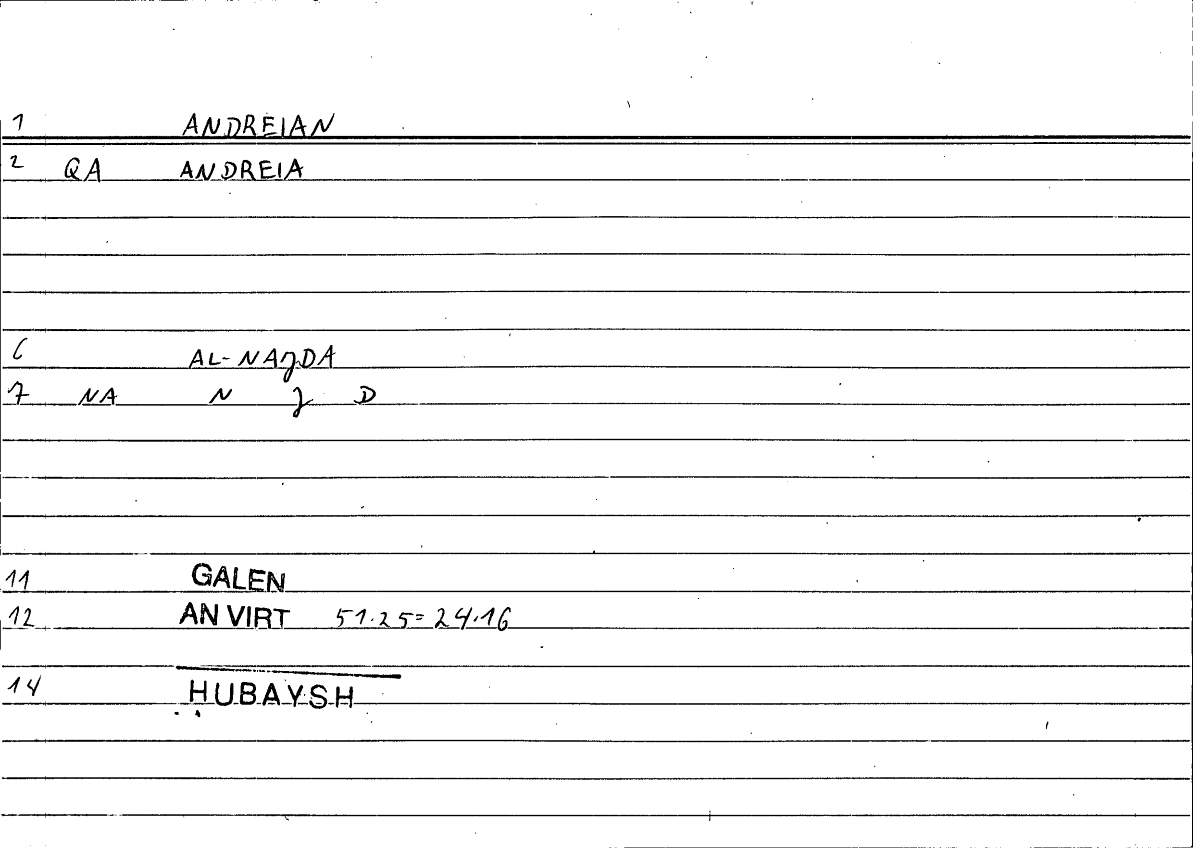 1 ANDREIAN
2 QA ANDREIA
6 AL-NAJDA
7 NA N J D
11 GALEN
12 AN VIRT 51.25=24.16
14 HUBAYSH